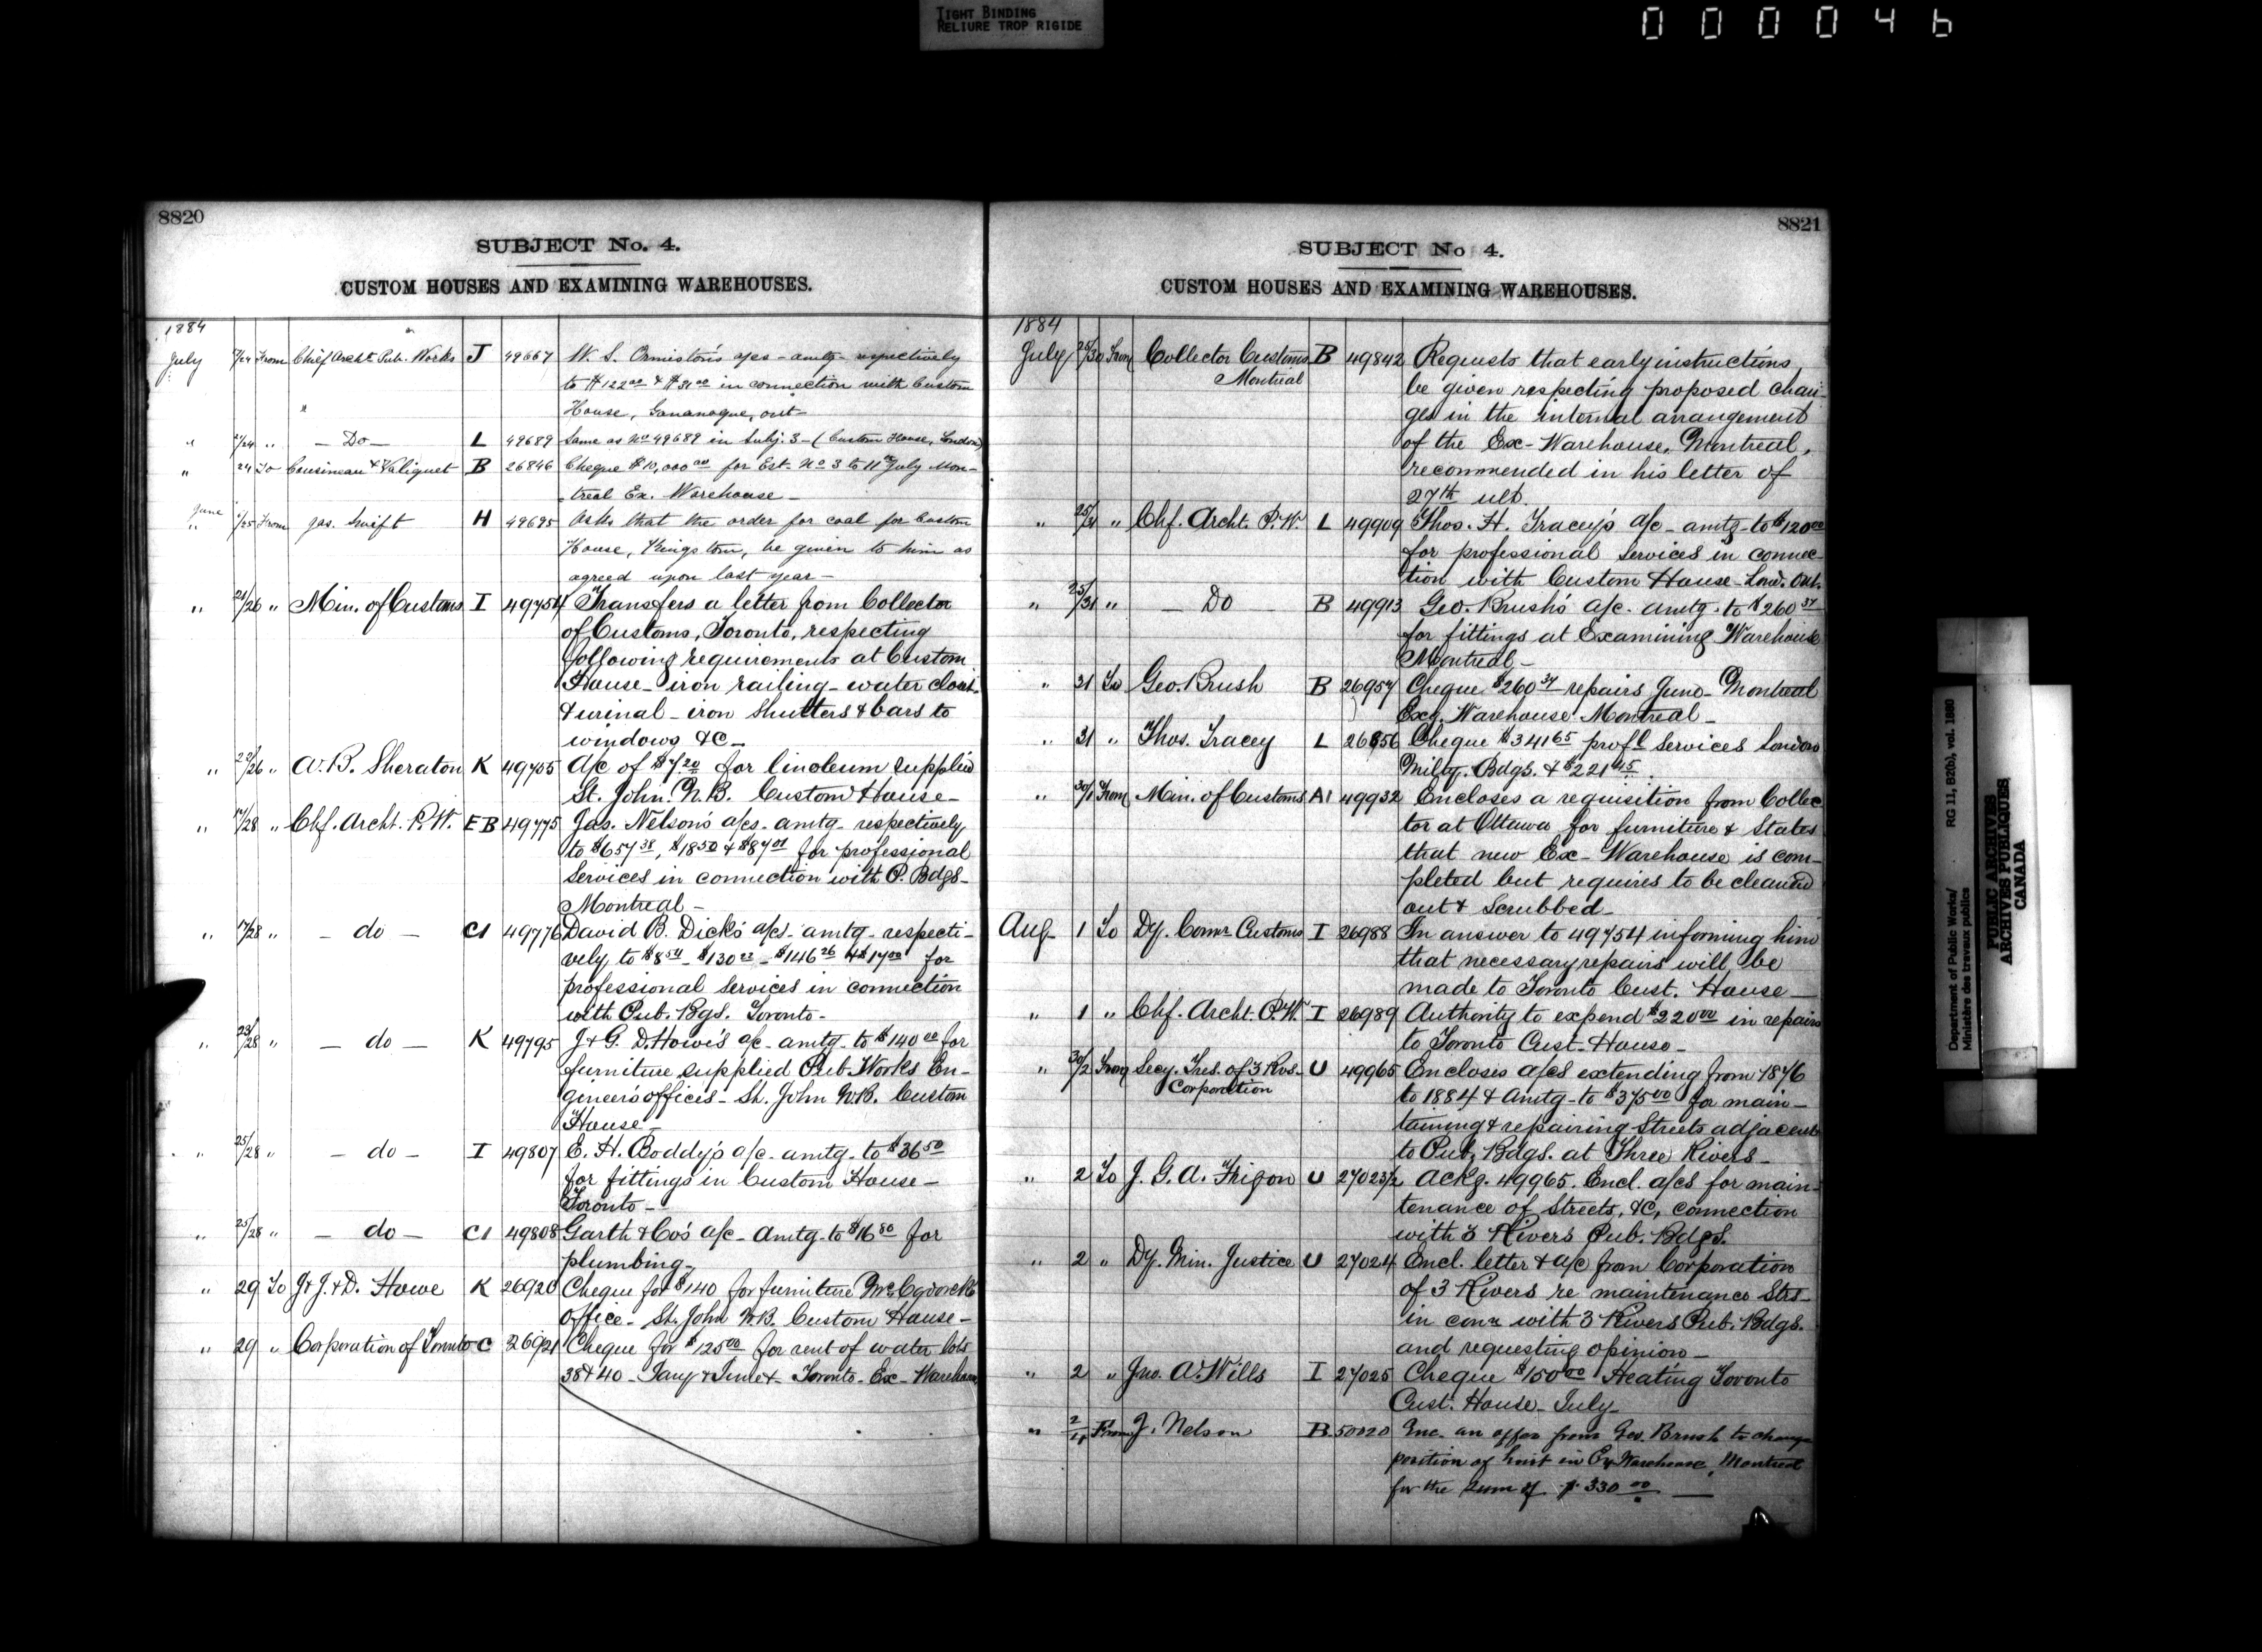 TIGHT BINDING
RELIURE TROP RIGIDE
000046
8820
SUBJECT No. 4.
CUSTOM HOUSES AND EXAMINING WAREHOUSES.
1884
July /24 From Chief Archt. Pub. Works J 49667 W. S. Ormiston's a/cs - amtg - respectively
to $122 00 & $31 00 in connection with Custom
House, Gananoque, Ont-
" /24 " - Do - L 49689 Same as No 49689 in Subj. 3 - (Custom House, London)
" 24 To Cousineau & Valiquet B 26846 Cheque $10,000 00 for Est. No 3 to 11th July Mon-
treal Ex. Warehouse -
June " /25 From Jas. Swift H 49695 Asks that the order for coal for Custom
House, Kingston, be given to him as
agreed upon last year -
" 21/26 " Min. of Customs I 49754 Transfers a letter from Collector
of Customs, Toronto, respecting
following requirements at Custom
House - iron railing - water closet
& urinal - iron Shutters & bars to
windows &c -
" 23/26 " A. B. Sheraton K 49755 A/c of $7.20 for linoleum supplied
St. John. N.B. Custom House -
" 17/28 " Chf. Archt. P.W. E B 49775 Jas. Nelson's a/cs. amtg. respectively
to $657 38, $18 50 & $87 01 for professional
Services in connection with P. Bdgs.
Montreal -
" 17/28 " - do - C1 49776 David B. Dick's a/cs - amtg - respecti-
vely to $8 54 - $130 22 - $146 26 & $17 00 for
professional services in connection
with Pub. Bgs. Toronto -
" 23/28 " - do - K 49795 J & G. D. Howe's a/c - amtg - to $140 00 for
furniture supplied Pub. Works En-
gineers offices - St. John N.B. Custom
House -
" 25/28 " - do - I 49807 E. H. Boddy's a/c - amtg - to $36 50
for fittings in Custom House -
Toronto -
" 25/28 " - do - C1 49808 Garth & Co's a/c - Amtg - to $16 80 for
plumbing -
" 29 To J & J. & D. Howe K 26920 Cheque for $140 for furniture
Office - St. John N.B. Custom House -
" 29 " Corporation of Toronto C 26921 Cheque for $125 00 for rent of water lots
38 & 40 - Toronto - Ex - Warehouse
8821
SUBJECT No 4.
CUSTOM HOUSES AND EXAMINING WAREHOUSES.
1884
July 25/30 From Collector Customs B 49842 Requests that early instructions
Montreal be given respecting proposed chan-
ges in the internal arrangement
of the Ex - Warehouse, Montreal,
recommended in his letter of
27th ult.
" 25/31 " Chf. Archt. P.W. L 49909 Thos. H. Tracey's a/c - amtg - to $120 00
for professional services in connec-
tion with Custom House - Lond. Ont.
" 25/31 " - Do - B 49913 Geo. Brush's a/c - amtg - to $260 37
for fittings at Examining Warehouse
Montreal -
" 31 To Geo. Brush B 26957 Cheque $260 37 repairs June - Montreal
Exg. Warehouse Montreal -
" 31 " Thos. Tracey L 26856 Cheque $341 65 profl Services London
Milty. Bdgs. & $221 45.
" 30/1 From Min. of Customs A1 49932 Encloses a requisition from Collec
tor at Ottawa for furniture & States
that new Ex - Warehouse is com-
pleted but requires to be cleaned
out & Scrubbed -
Aug 1 To Dy. Comr Customs I 26988 In answer to 49754 informing him
that necessary repairs will be
made to Toronto Cust. House -
" 1 " Chf. Archt. P.W. I 26989 Authority to expend $220 00 in repairs
to Toronto Cust. House -
" 30/2 From Secy. Tres. of 3 Rvs. U 49965 Encloses a/cs extending from 1876
Corporation to 1884 & Amtg - to $375 00 for main-
taining & repairing Streets adjacent
to Pub. Bdgs. at Three Rivers -
" 2 To J. G. A. Frigon U 27023 1/2 Ackg. 49965. Encl. a/cs for main-
tenance of Streets, &c, connection
with 3 Rivers Pub. Bdgs.
" 2 " Dy. Min. Justice U 27024 Encl. letter & a/c from Corporation
of 3 Rivers re maintenance Strs -
in conn with 3 Rivers Pub. Bdgs.
and requesting opinion -
" 2 " Jno. A. Wills I 27025 Cheque $150 00 Heating Toronto
Cust. House - July -
" 2/ From J. Nelson B 50020 Enc. an offer from Geo. Brush to change
position of hoist in Ex Warehouse, Montreal
for the sum of $330 00
Department of Public Works/ RG 11, B2(b), vol. 1880
Ministère des travaux publics
PUBLIC ARCHIVES
ARCHIVES PUBLIQUES
CANADA